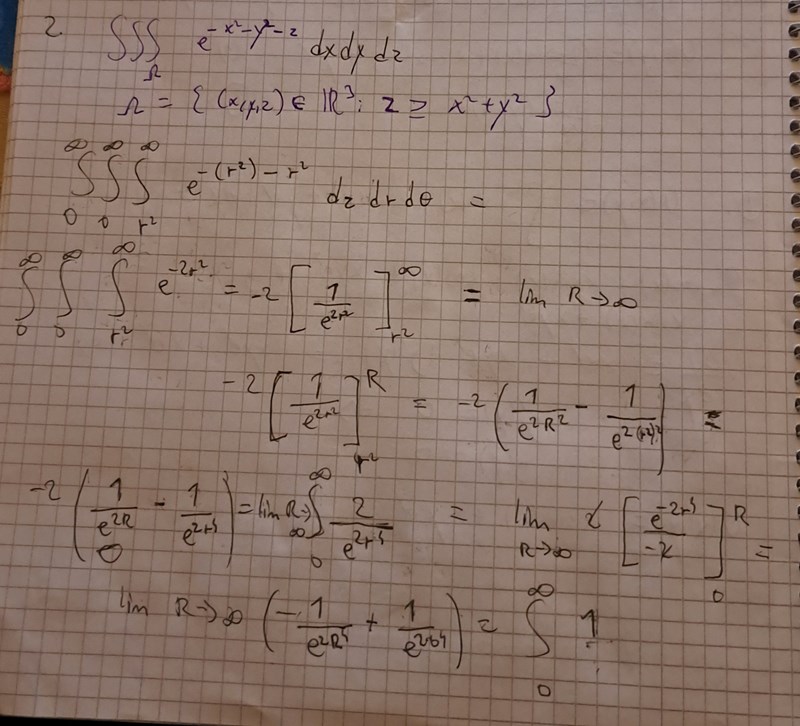 2. ∫∫∫_Ω e^{-x²-y²-z} dxdydz
Ω = { (x,y,z) ∈ ℝ³ : z ≥ x²+y² }
∫_0^∞ ∫_0^∞ ∫_{r²}^∞ e^{-(r²)-r²} dz dr dθ =
∫_0^∞ ∫_0^∞ ∫_{r²}^∞ e^{-2r²} = -2 [ 1/e^{2r²} ]_{r²}^∞ = lim R→∞
-2 [ 1/e^{2r²} ]_{r²}^R = -2 ( 1/e^{2R²} - 1/e^{2(r²)²} ) =
-2 ( 1/e^{2R} - 1/e^{2r⁴} ) = lim R→∞ ∫_0^∞ 2/e^{2r⁴} = lim R→∞ 2 [ e^{-2r⁴}/-2 ]_0^R =
lim R→∞ ( -1/e^{2R⁴} + 1/e^{2·0⁴} ) = ∫_0^∞ 1